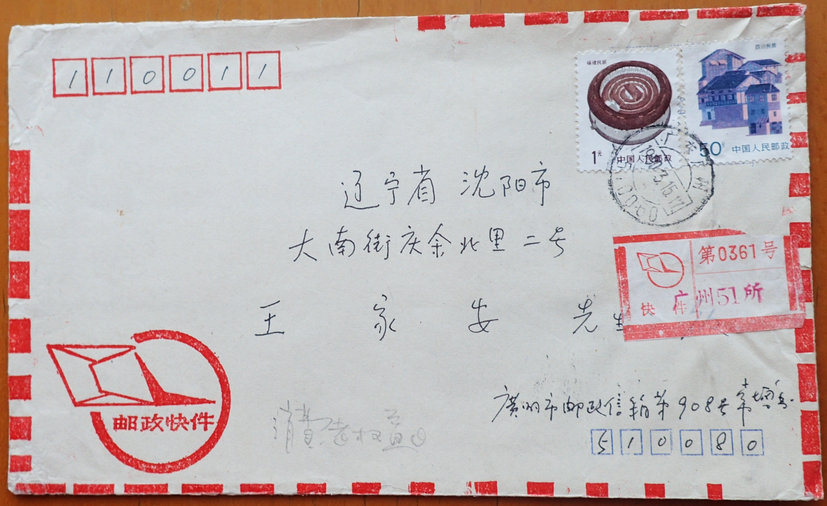 110011
福建民居
1元
中国人民邮政
四川民居
50分
中国人民邮政
辽宁省 沈阳市
大南街庆余北里二号
王 家 安 先生
第0361号
快件
广州51所
邮政快件
广州市邮政信箱第908号
510080